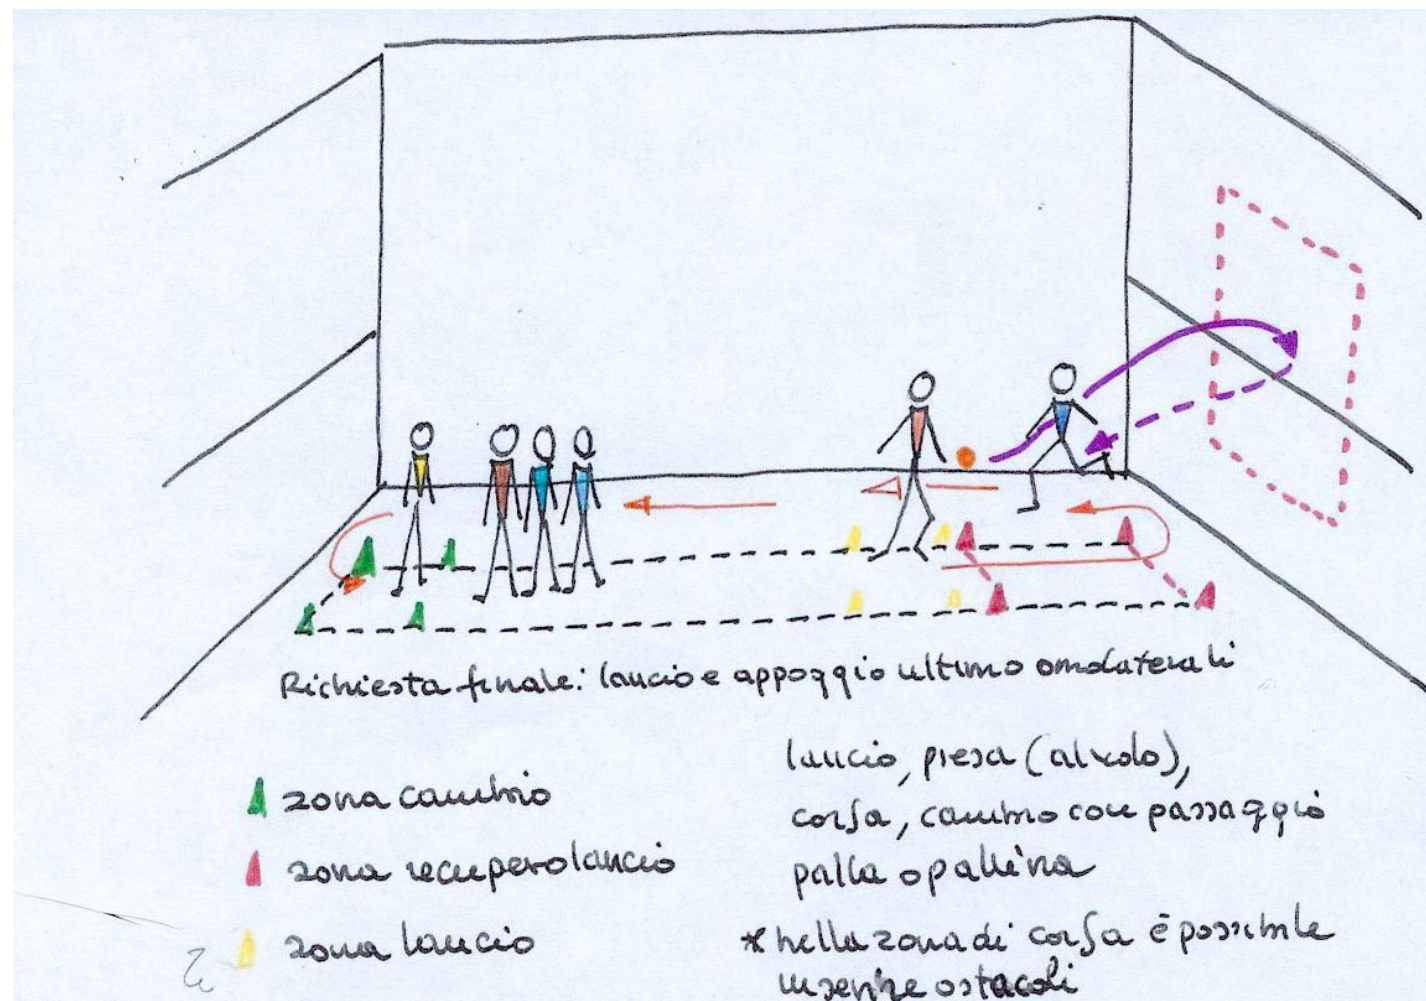 Richiesta finale: lancio e appoggio ultimo omolaterali
zona cambio
zona recupero lancio
zona lancio
lancio, presa (al volo),
corsa, cambio con passaggio
palla o pallina
* nella zona di corsa è possibile
inserire ostacoli